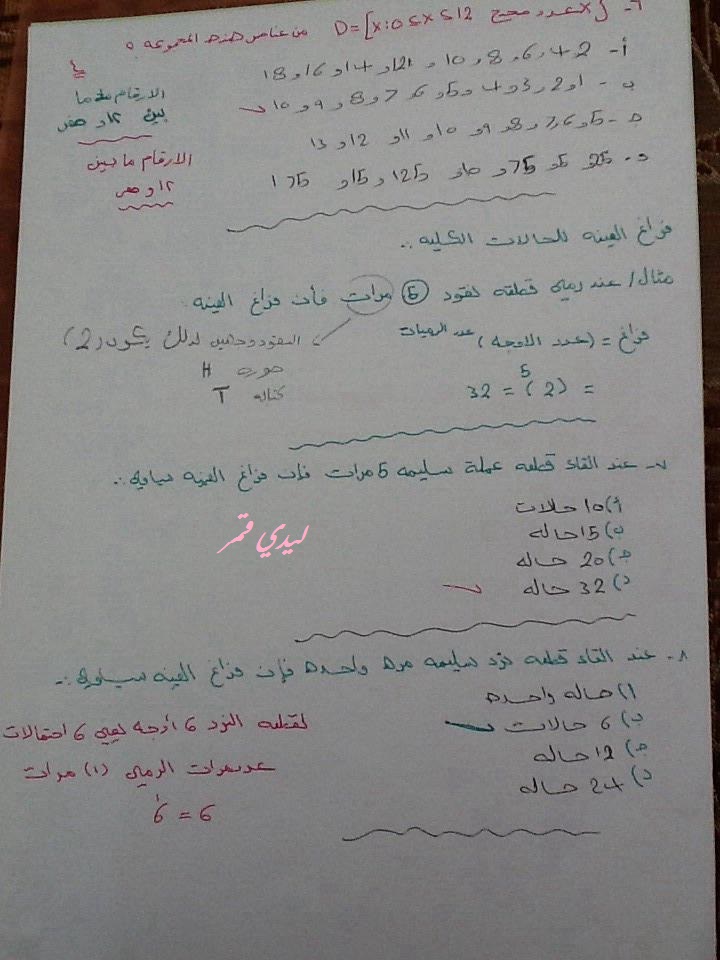 ٦- D={x:0≤x≤12 عدد صحيح x} من عناصر هذه المجموعه
أ- 2و4و6و8و10و12و14و16و18
ب- 1و2و3و4و5و6و7و8و9و10
ج- 5و6و7و8و9و10و11و12و13
د- 25و5و75و10و125و15و175
الارقام ما
بين ١٢ و صفر
الارقام ما بين
١٢ و صفر
فراغ العينه للحالات الكليه :.
مثال / عند رمي قطعه نقود (5) مرات فأن فراغ العينه
فراغ = (عدد الاوجه) عدد الرميات
النقود وجهين لذلك يكون (2)
صوره H
كتابه T
= (2)⁵ = 32
٧- عند القاء قطعه عملة سليمه 5 مرات فإن فراغ العينه يساوي :.
أ) 10 حالات
ب) 15 حاله
ج) 20 حاله
د) 32 حاله
ليدي قمر
٨- عند القاء قطعه نرد سليمه مره واحده فإن فراغ العينه يساوي :.
أ) حاله واحده
ب) 6 حالات
ج) 12 حاله
د) 24 حاله
لقطعه النرد 6 أوجه يعني 6 احتمالات
عدد مرات الرمي (١) مرات
6¹ = 6